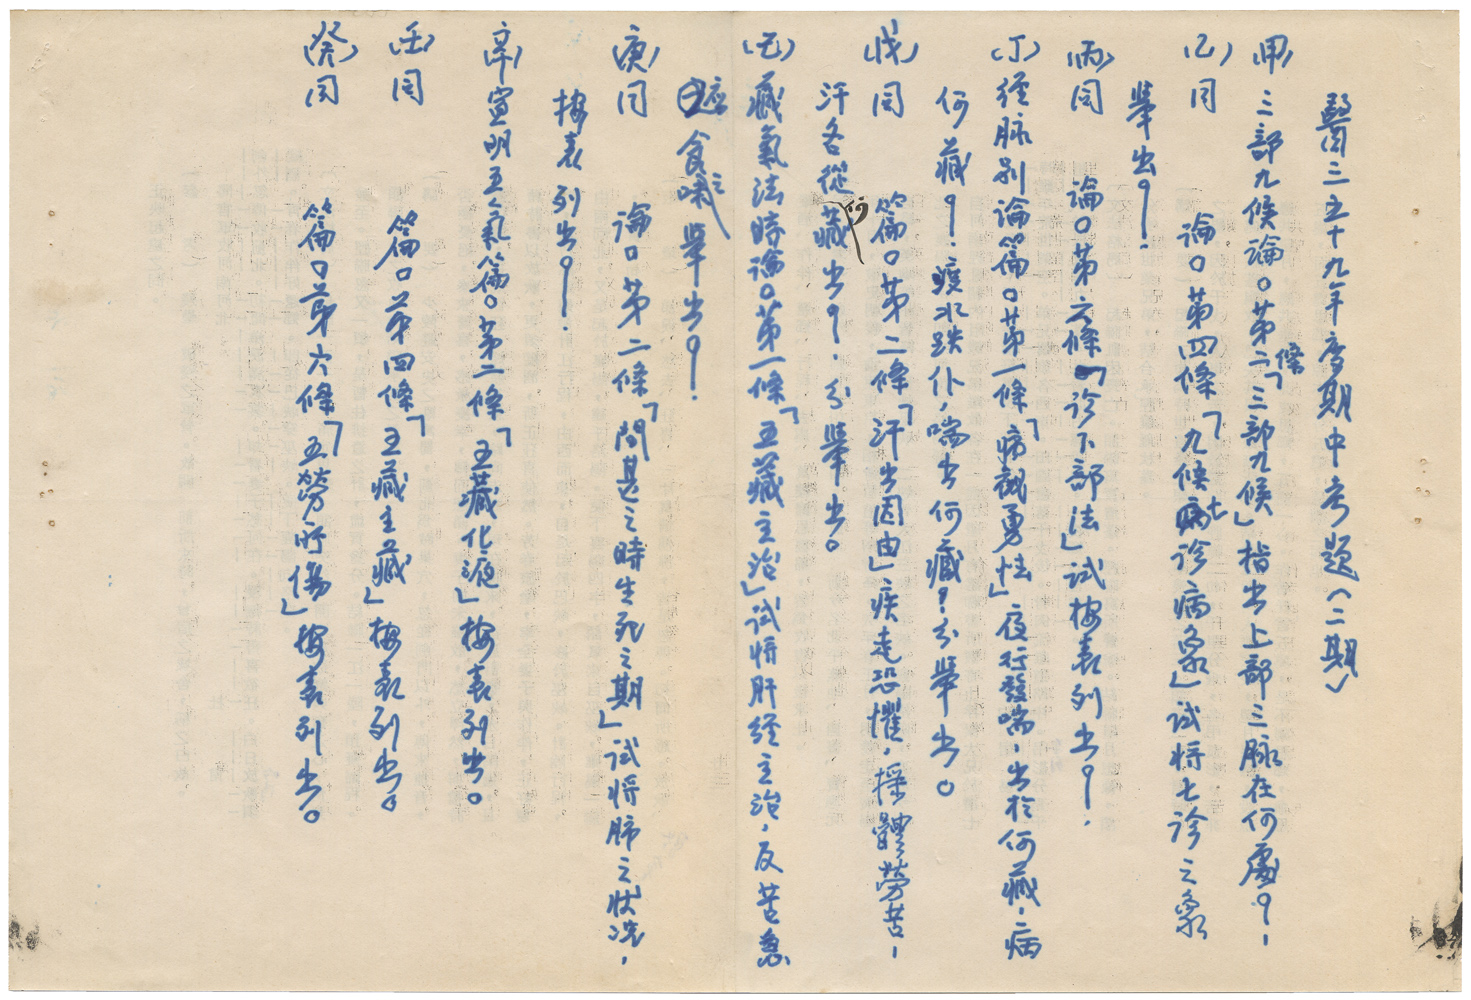 醫三五十九年度期中考題(二期)
(甲)三部九候論。第二條「三部九候」指出上部三脉在何處?
(乙)同 論。第四條「九候七診病象」試將七診之象
舉出?
(丙)同 論。第六條「診下部法」試按表列出?
(丁)經脉別論篇。第一條「病觀勇怯」夜行發喘,出於何藏,病
何藏?渡水跌仆,喘出何藏?分舉出。
(戊)同 篇。第二條「汗出因由」疾走恐懼,搖體勞苦,
汗各從藏出?分舉出。
(己)藏氣法時論。第一條「五藏主治」試將肝經主治,反苦急
食之味舉出?
(庚)同 論。第二條「間甚之時生死之期」試將肺之狀况,
按表列出?
(辛)宣明五氣篇。第二條「五藏化液」按表列出。
(壬)同 篇。第四條「五藏主藏」按表列出。
(癸)同 篇。第六條「五勞所傷」按表列出。